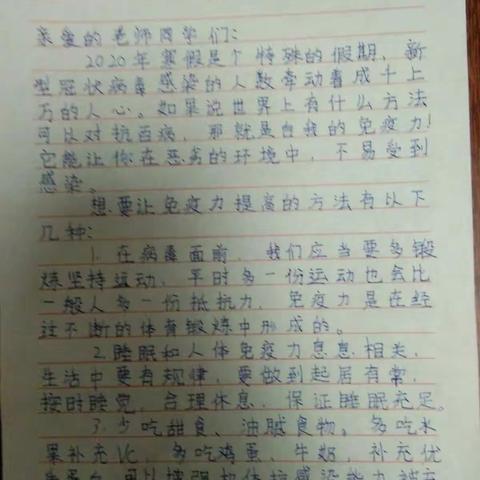 亲爱的老师同学们:
2020年寒假是个特殊的假期,新
型冠状病毒感染的人数牵动着成千上
万的人心。如果说世界上有什么方法
可以对抗百病,那就是自我的免疫力!
它能让你在恶劣的环境中,不易受到
感染。
想要让免疫力提高的方法有以下
几种:
1.在病毒面前,我们应当要多锻
炼坚持运动,平时多一份运动也会比
一般人多一份抵抗力,免疫力是在经
过不断的体育锻炼中形成的。
2.睡眠和人体免疫力息息相关,
生活中要有规律,要做到起居有常,
按时睡觉,合理休息,保证睡眠充足。
3.少吃甜食、油腻食物。多吃水
果补充Vc,多吃鸡蛋、牛奶,补充优
质蛋白,可以增强机体抗感染能力